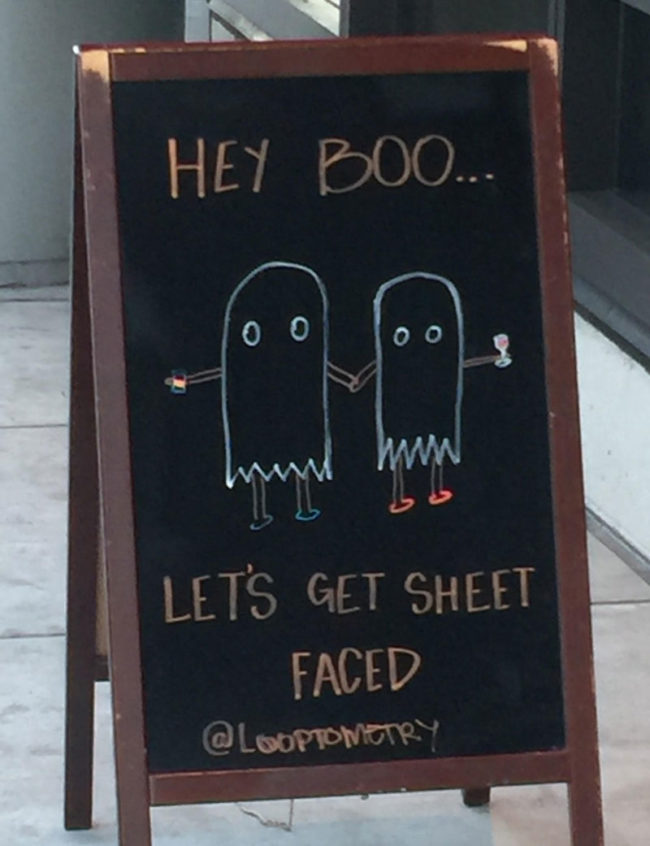 HEY BOO...
LET'S GET SHEET
FACED
@LOOPTOMETRY